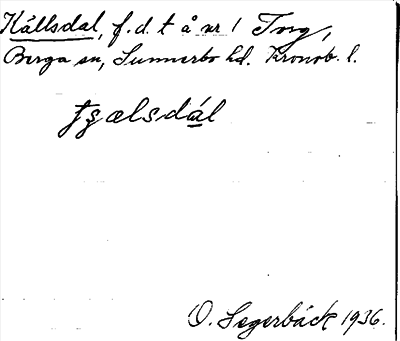 Källsdal, f.d. t å nr 1 Torg,
Berga sn, Sunnerbo hd. Kronob. l.
tʂælsdál
O. Segerbäck 1936.